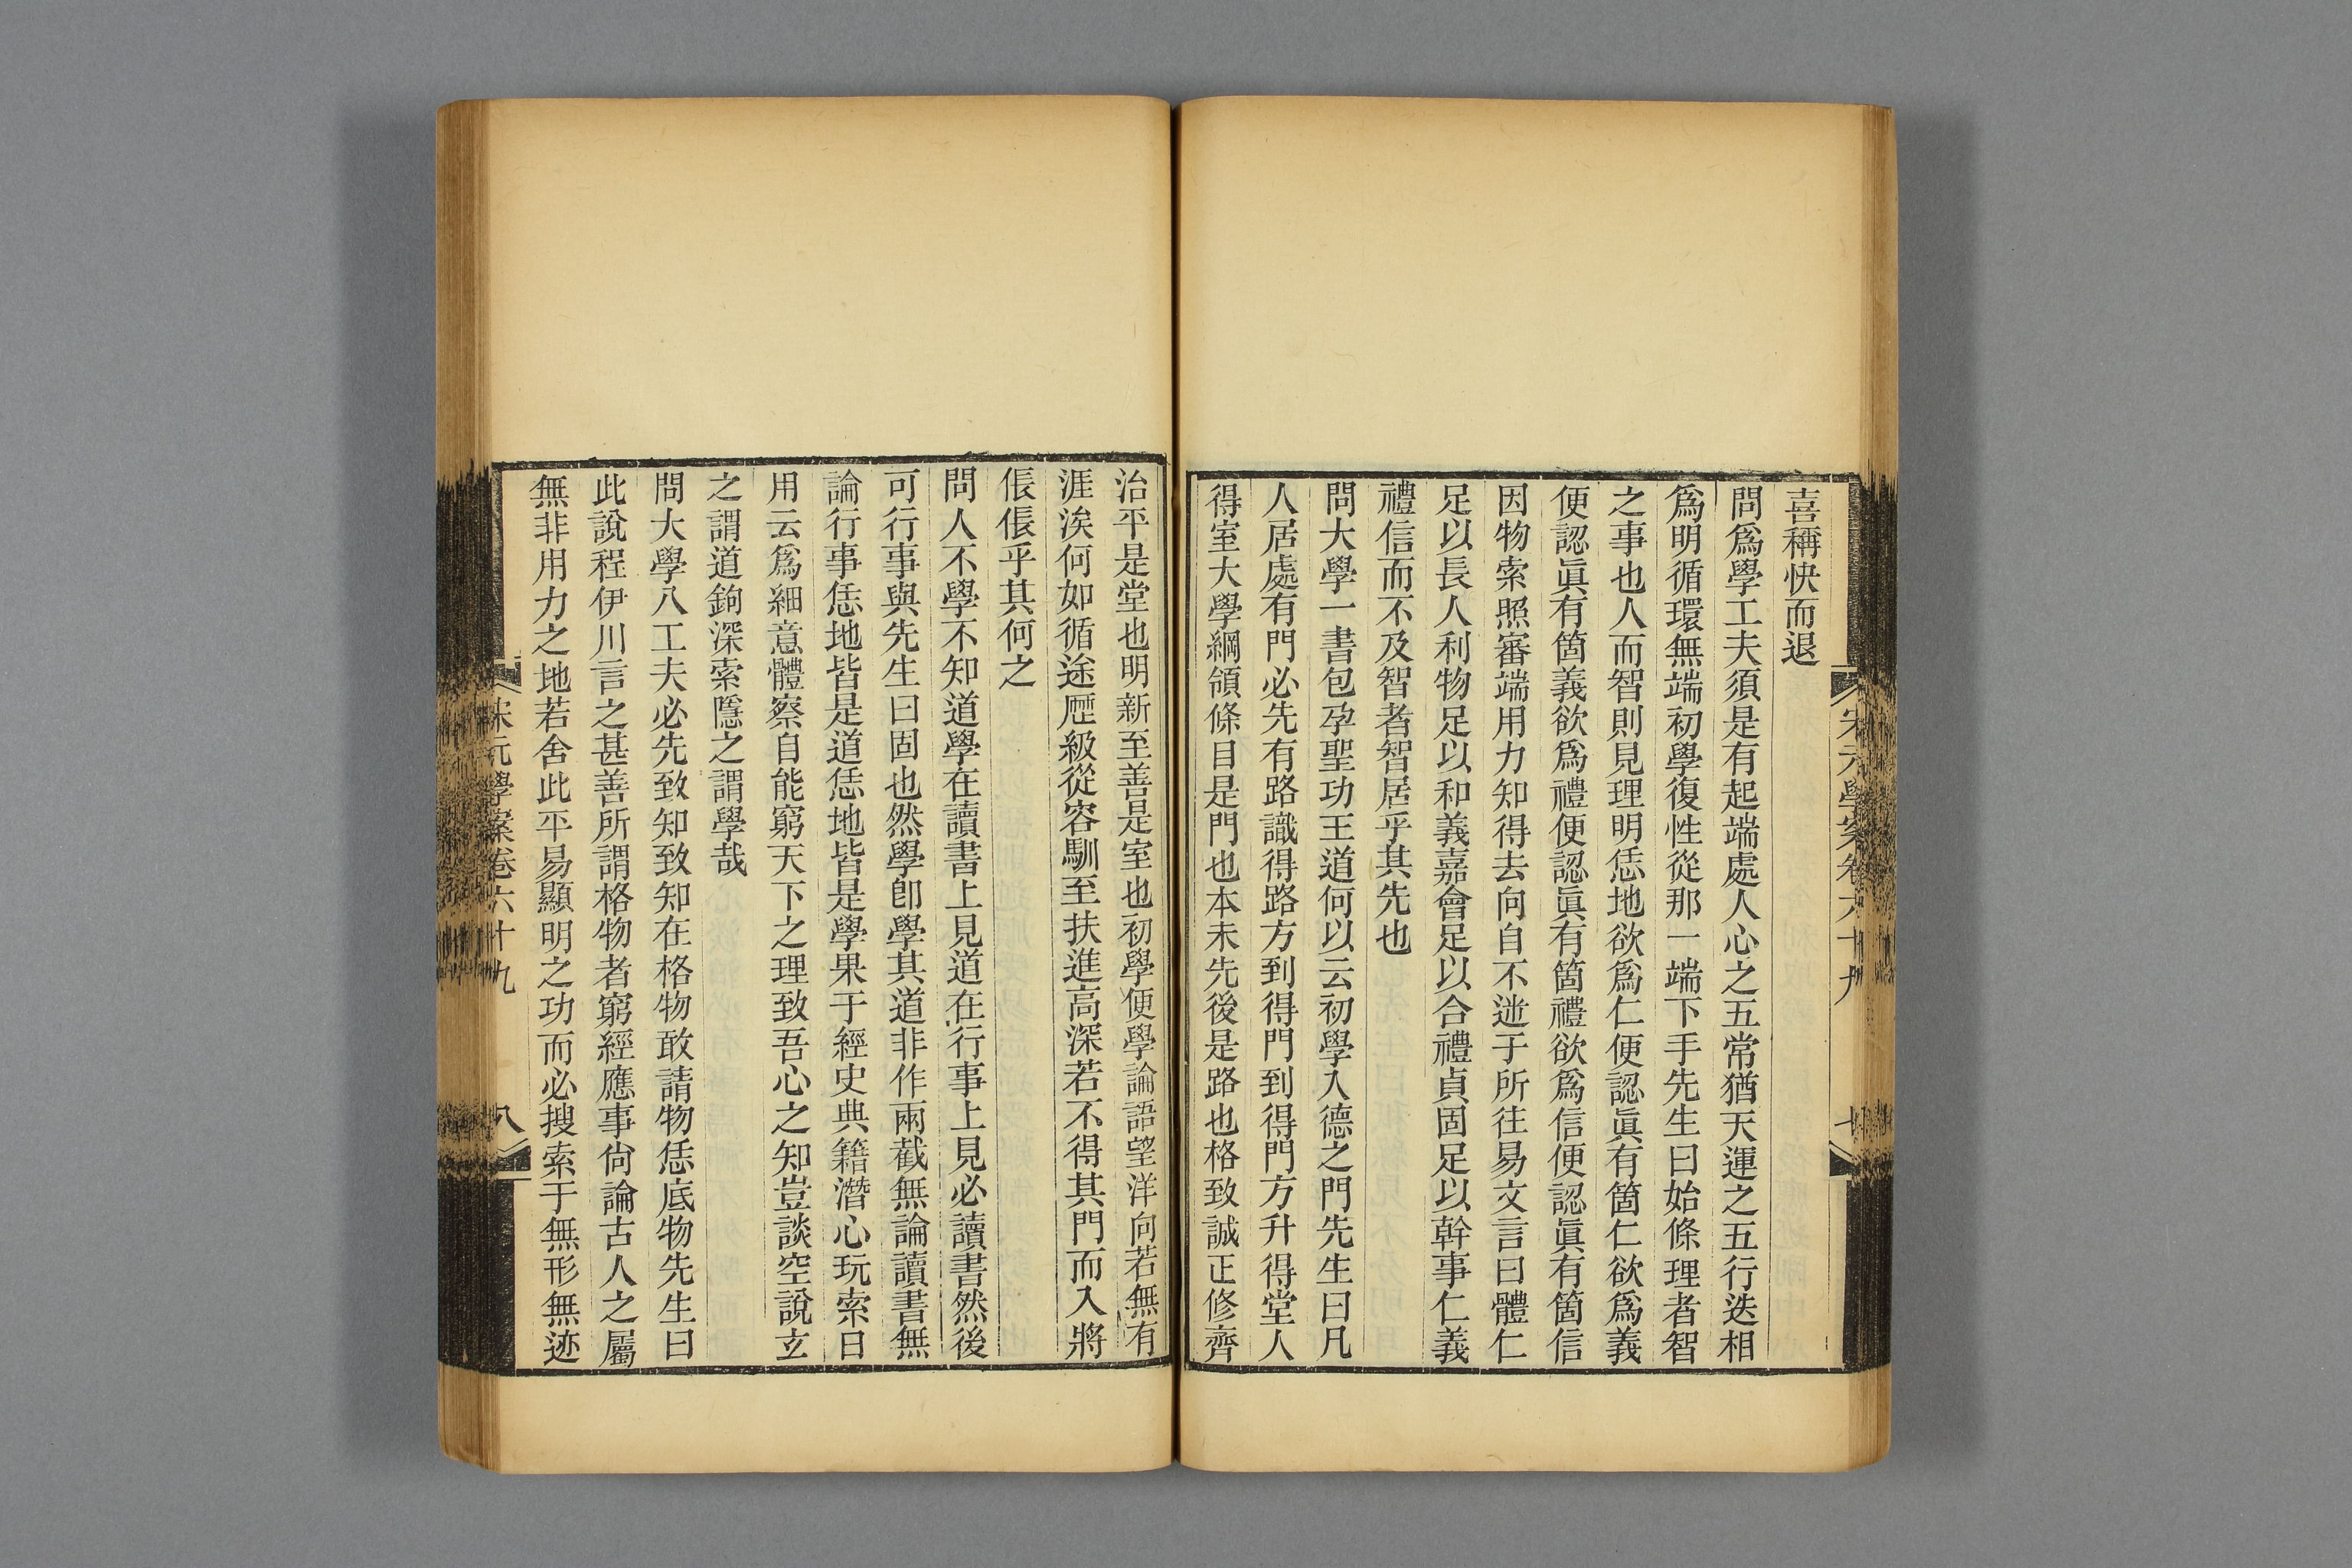 宋元學案卷六十九
七
喜稱快而退
問爲學工夫須是有起端處人心之五常猶天運之五行迭相
爲明循環無端初學復性從那一端下手先生曰始條理者智
之事也人而智則見理明恁地欲爲仁便認眞有箇仁欲爲義
便認眞有箇義欲爲禮便認眞有箇禮欲爲信便認眞有箇信
因物索照審端用力知得去向自不迯于所往易文言曰體仁
足以長人利物足以和義嘉會足以合禮貞固足以幹事仁義
禮信而不及智者智居乎其先也
問大學一書包孕聖功王道何以云初學入德之門先生曰凡
人居處有門必先有路識得路方到得門到得門方升得堂人
得室大學綱領條目是門也本末先後是路也格致誠正修齊
治平是堂也明新至善是室也初學便學論語望洋向若無有
涯涘何如循途歷級從容馴至扶進高深若不得其門而入將
倀倀乎其何之
問人不學不知道學在讀書上見道在行事上見必讀書然後
可行事與先生曰固也然學卽學其道非作兩截無論讀書無
論行事恁地皆是道恁地皆是學果于經史典籍潛心玩索日
用云爲細意體察自能窮天下之理致吾心之知豈談空說玄
之謂道鉤深索隱之謂學哉
問大學八工夫必先致知致知在格物敢請物恁底物先生曰
此說程伊川言之甚善所謂格物者窮經應事尙論古人之屬
無非用力之地若舍此平易顯明之功而必搜索于無形無迹
宋元學案卷六十九
八